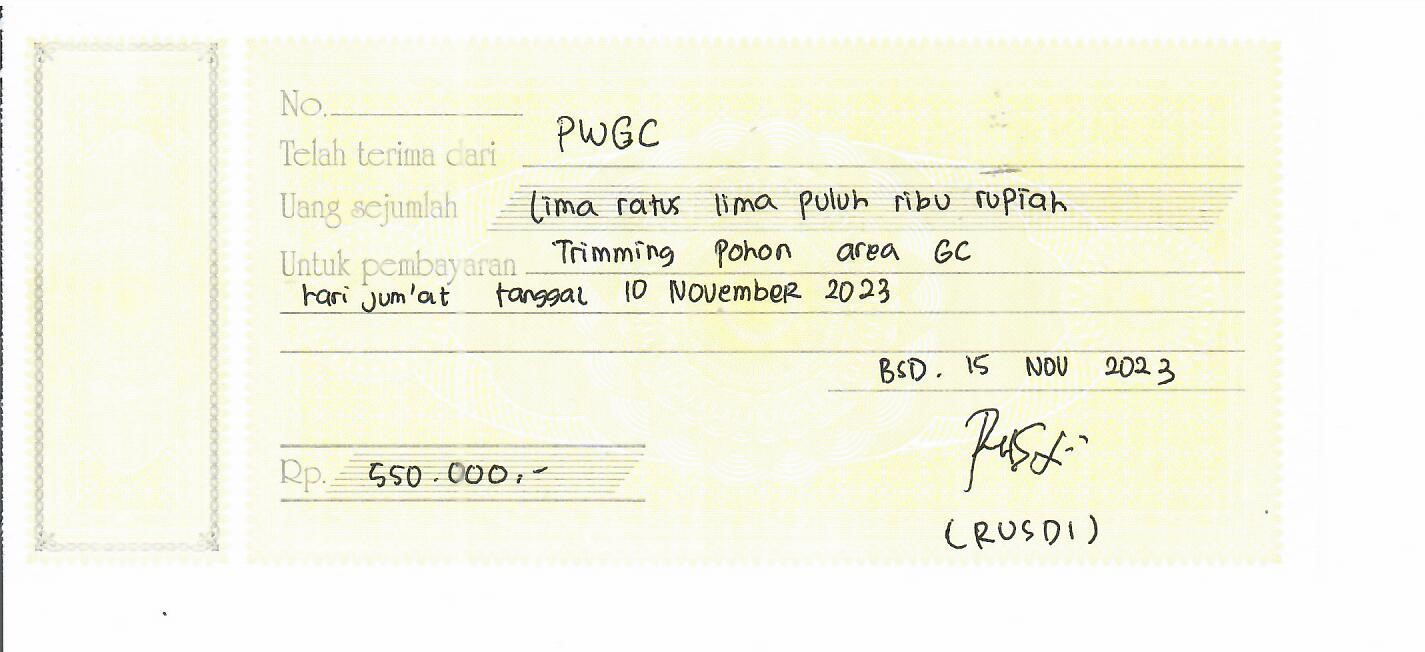 No.
Telah terima dari PWGC
Uang sejumlah lima ratus lima puluh ribu rupiah
Untuk pembayaran Trimming pohon area GC
hari jum'at tanggal 10 November 2023
BSD. 15 NOV 2023
Rusdi
Rp. 550.000,-
(RUSDI)